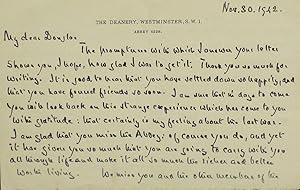 Nov. 30. 1942.
THE DEANERY, WESTMINSTER, S.W.1.
ABBEY 5228.
My dear Douglas
The promptness with which I answer your letter
shows you, I hope, how glad I was to get it. Thank you so much for
writing. It is good to hear that you have settled down so happily, and
that you have found friends so soon. I am sure that in days to come
you will look back on this strange experience which has come to you
with gratitude: that certainly is my feeling about the last war.
I am glad that you miss the Abbey: of course you do, and yet
it has given you so much that you are going to carry with you
all through life and make it all so much the richer and better
worth living. We miss you and the other members of the